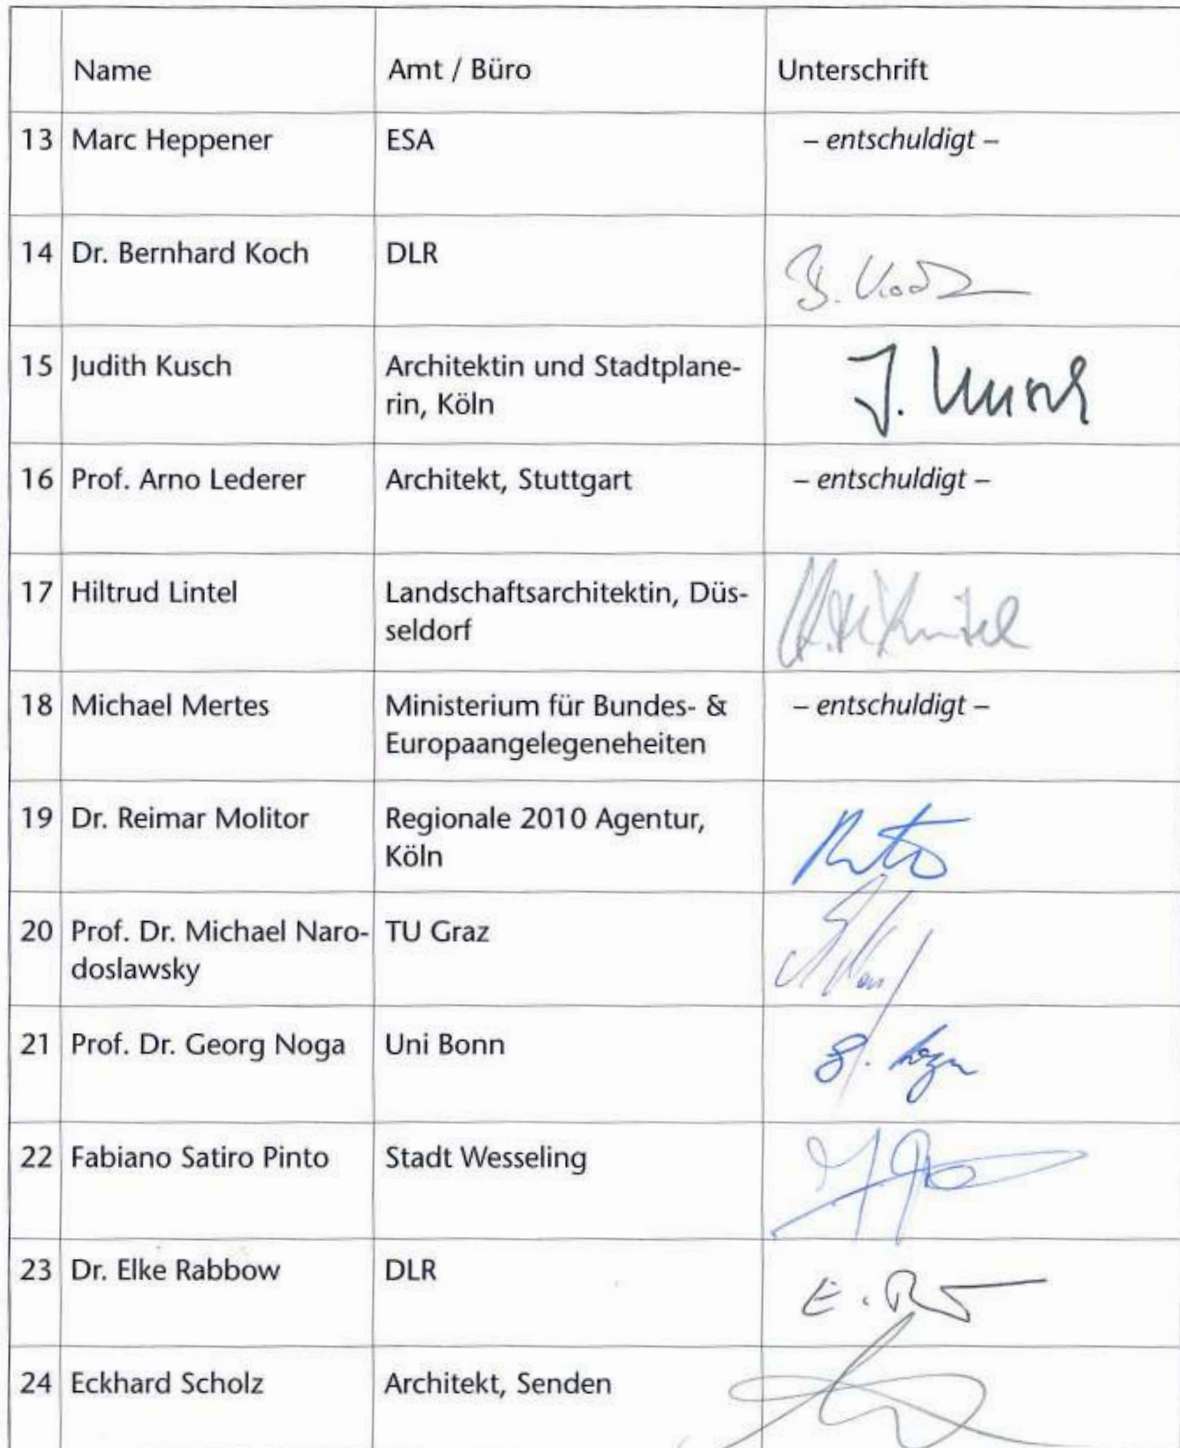 Name Amt / Büro Unterschrift
13 Marc Heppener ESA – entschuldigt –
14 Dr. Bernhard Koch DLR B. Koch
15 Judith Kusch Architektin und Stadtplane- J. Kusch
rin, Köln
16 Prof. Arno Lederer Architekt, Stuttgart – entschuldigt –
17 Hiltrud Lintel Landschaftsarchitektin, Düs-
seldorf
18 Michael Mertes Ministerium für Bundes- & – entschuldigt –
Europaangelegeneheiten
19 Dr. Reimar Molitor Regionale 2010 Agentur,
Köln
20 Prof. Dr. Michael Naro- TU Graz
doslawsky
21 Prof. Dr. Georg Noga Uni Bonn
22 Fabiano Satiro Pinto Stadt Wesseling
23 Dr. Elke Rabbow DLR
24 Eckhard Scholz Architekt, Senden